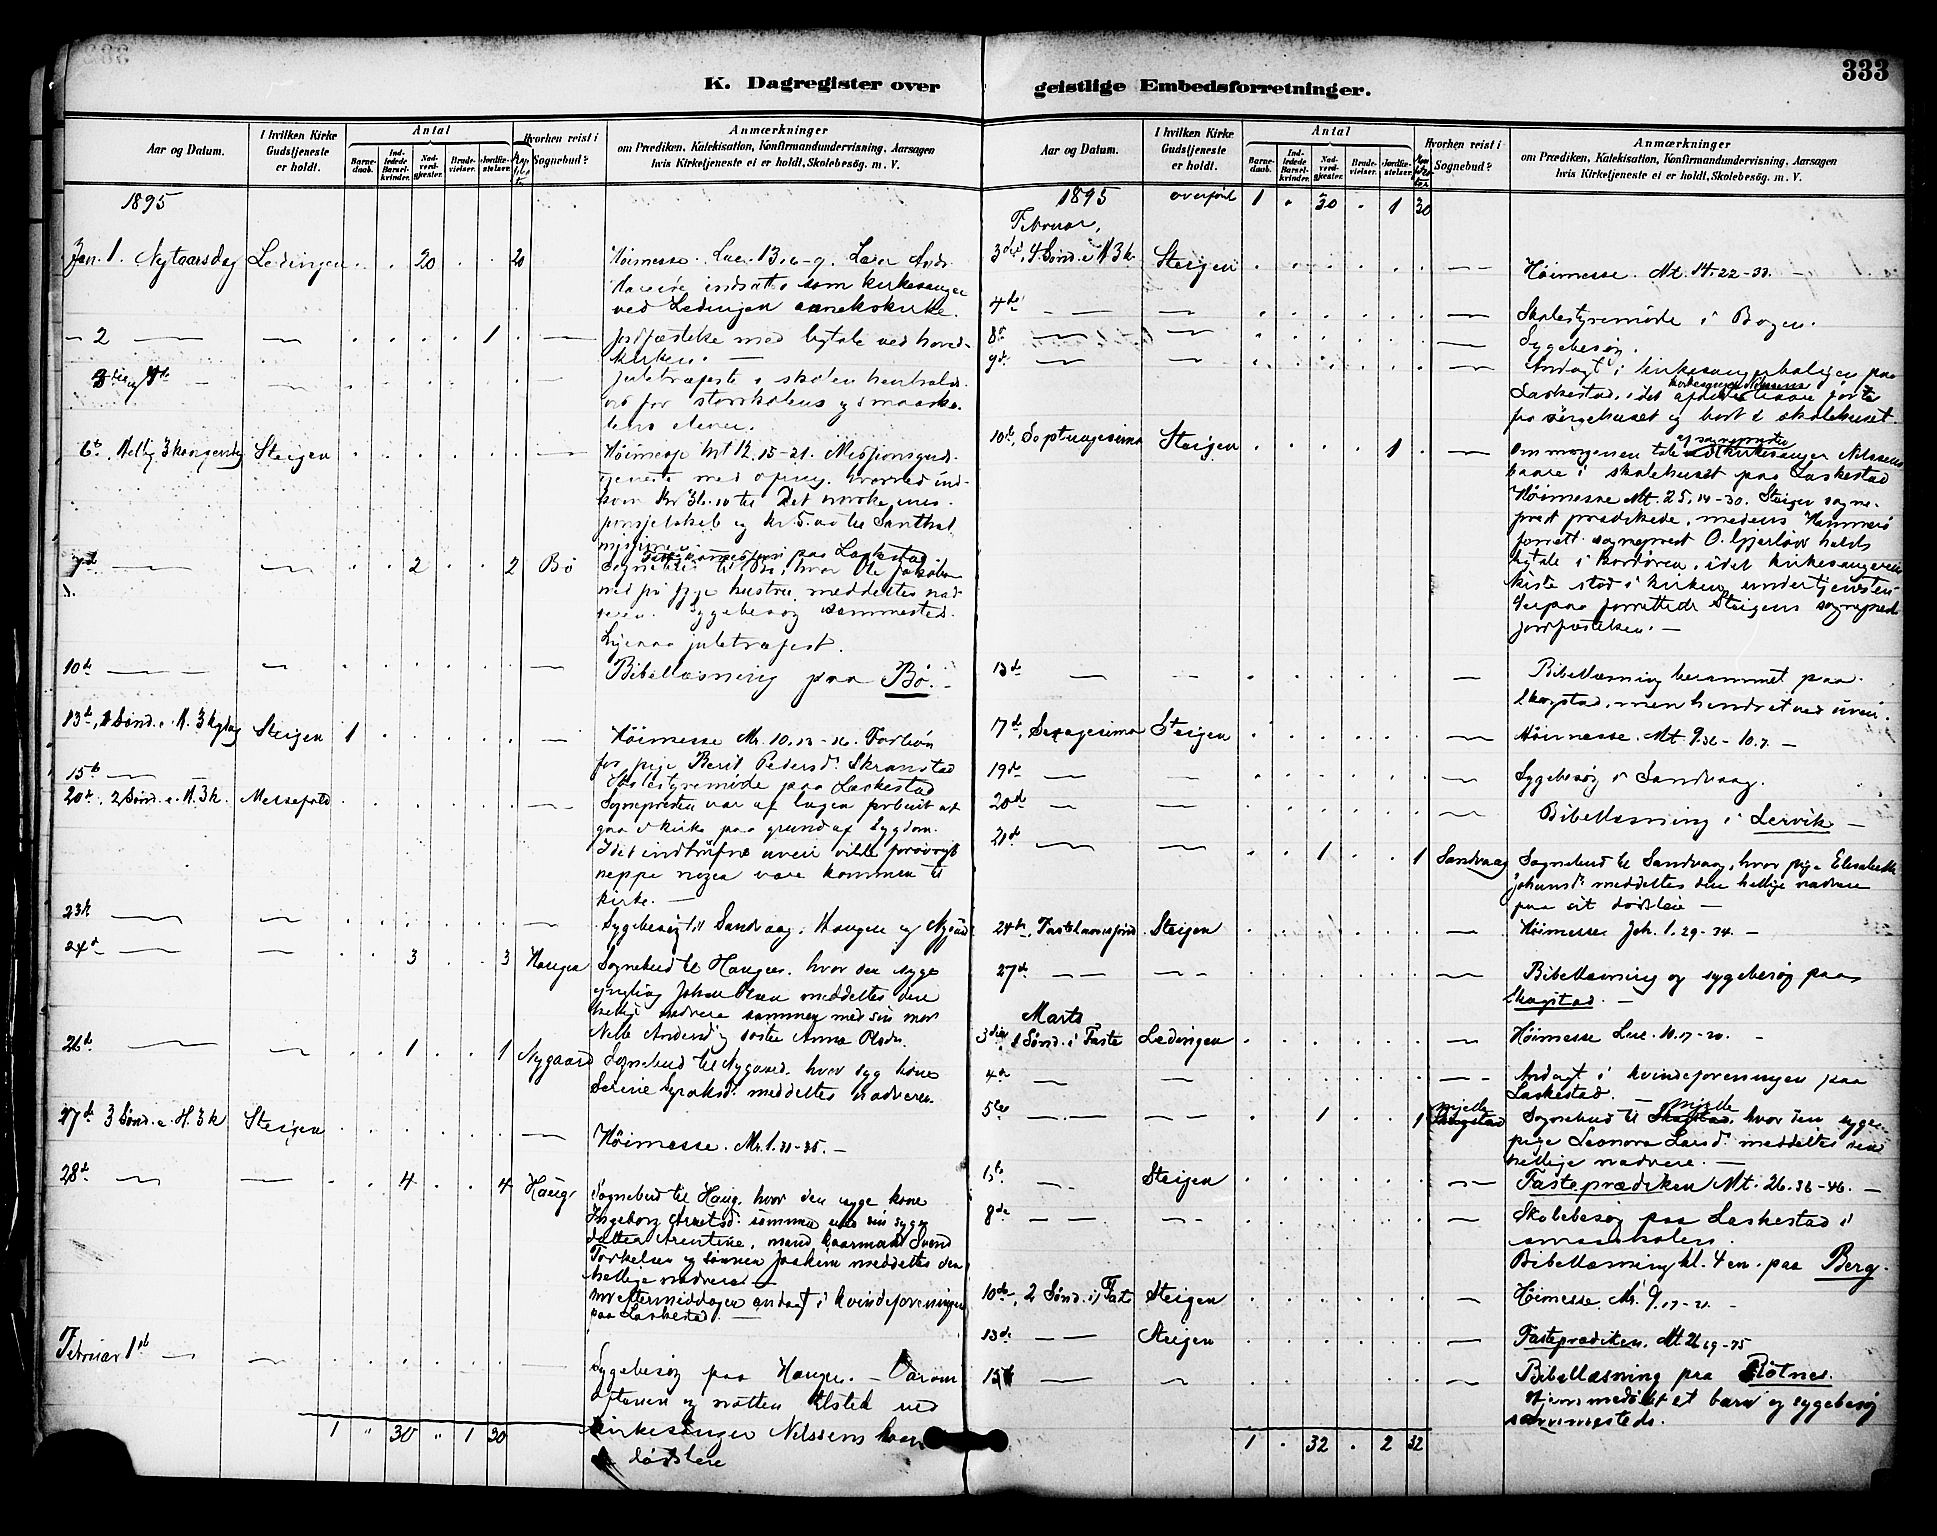 333
K. Dagregister over geistlige Embedsforretninger.
Aar og Datum.
I hvilken Kirke Gudstjeneste er holdt.
Antal
Barnedaab.
Indledede Barselkvinder.
Nadverdgjæster.
Brudevielser.
Jordfæstelser.
Hvorhen reist i Sognebud?
Anmærkninger
om Prædiken, Katekisation, Konfirmandundervisning, Aarsagen
hvis Kirketjeneste ei er holdt, Skolebesøg. m. V.
1895
Jan. 1. Nytaarsdag Lødingen 20 20 Høimesse. Luc. 13.6-9. Lærer
indsatte som kirkesanger
ved Lødingen annekskirke.
- 2 1 Jordfæstelse med ligtale ved hoved-
kirken. -
3die og 4de Juletræfeste i skolen
for storskolens og smaasko-
lens elever.
6te Hellig 3 kongersdag Steigen Høimesse Mt 12. 15-21. Missionsgud-
tjeneste med ofring, hvorved ind-
kom Kr 36.10 til Det norske mis-
sionsselskab og kr. 5.00 til Santhal
missionen
7de 2 2 Bø Sognebud til Bø, hvor Ole Jakobsen
hustru meddeltes nad-
veren. Sygebesøg sammested.
juletræfest.
10de Bibellæsning paa Bø. -
13de, 1 Sønd. e. H. 3 kgdag Steigen 1 Høimesse Mr. 10.13-16. Forbøn
for pige Berit Pedersd. Skranstad
15de Skolestyremøde paa Laskestad
20de, 2 Sønd. e. H. 3 k. Sognepresten var af lægen forbudt at
gaa i kirke paa grund af sygdom.
Idet indtrufne uveir vilde forøvrigt
neppe nogen være kommen til
kirke. -
23de Sygebesøg til Sandvaag, Haugen og Nygaard
24de 3 3 Haugen Sognebud til Haugen, hvor den syge
yngling Johan Olsen meddeltes den
hellige nadvere sammen med sin mor
Andersd. og søster Anna Olsdr.
26de 1 1 Nygaard Sognebud til Nygaard, hvor syg kone
meddeltes nadveren.
27de 3 Sønd. e. H. 3 k Steigen Høimesse. Mr. 1. 21-35. -
28de 4 4 Haug Sognebud til Haug, hvor den syge kone
Ingeborg sammen med sin syge
datter Arentine, mand Svend
Torkelsen og sønnen Joakim meddeltes den
hellige nadvere. -
Om eftermiddagen andagt i kvindeforeningen
paa Laskestad. -
Februar 1ste Sygebesøg paa Haugen. - Var om
aftenen og natten tilsted ved
kirkesanger Nilssens
dødsleie
1 " 30 " 1 30
1895 overført 1 " 30 " 1 30
Februar,
3die, 4 Sønd. e. H 3 k Steigen Høimesse. Mt. 14. 22-33. -
4de Skolestyremøde i Bogen.
8de Sygebesøg.
9de Andagt i kirkesangerboligen paa
Laskestad, idet afdøde kirkesanger Nilssens baare førtes
fra sørgehuset og bort til skolehuset.
10de, Septuagesima Steigen 1 Om morgenen tale af sognepresten ved kirkesanger Nilssens
baare i skolehuset paa Laskestad
Høimesse Mt. 25. 14-30. Steigen sogne-
prest prædikede, medens Hammerø
sogneprest O. Gjerløw holdt
ligtale i kordøren, idet kirkesangerens
kiste stod i kirken under tjenesten.
Derpaa forrettede Steigens sogneprest
jordfæstelsen. -
13de Bibellæsning berammet paa
Skagstad, men hindret ved uveir.
17de, Sexagesima Steigen Høimesse. Mt. 9.36-10.7. -
19de Sygebesøg i Sandvaag.
20de Bibellæsning i Lervik -
21de 1 1 Sandvaag Sognebud til Sandvaag, hvor pige Elisabeth
Johansd. meddeltes den hellige nadvere
paa sit dødsleie -
24de, Fastelavnssønd. Steigen Høimesse Joh. 1. 29-34. -
27de Bibellæsning og sygebesøg paa
Skagstad. -
Marts
3die, 1 Sønd. i Faste Lødingen Høimesse Luc. 10.17-20. -
4de Andagt i kvindeforeningen paa
Laskestad. -
5te 1 1 Mjelle Skagstad Sognebud til Skagstad Mjelle, hvor den syge
pige Leonora Larsd. meddeltes den
hellige nadvere. -
Steigen Fasteprædiken Mt. 26.36-46. -
8de Skolebesøg paa Laskestad i
smaaskolen.
Bibellæsning kl. 4 em. paa Berg.
10de, 2 Sønd. i Faste Steigen Høimesse. Mr. 9.17-21. -
13de Steigen Fasteprædiken. Mt 26 69-75
15de Bibellæsning paa Røtnes.
Hjemmedøbt et barn og sygebesøg
sammesteds.
1 " 32 " 2 32